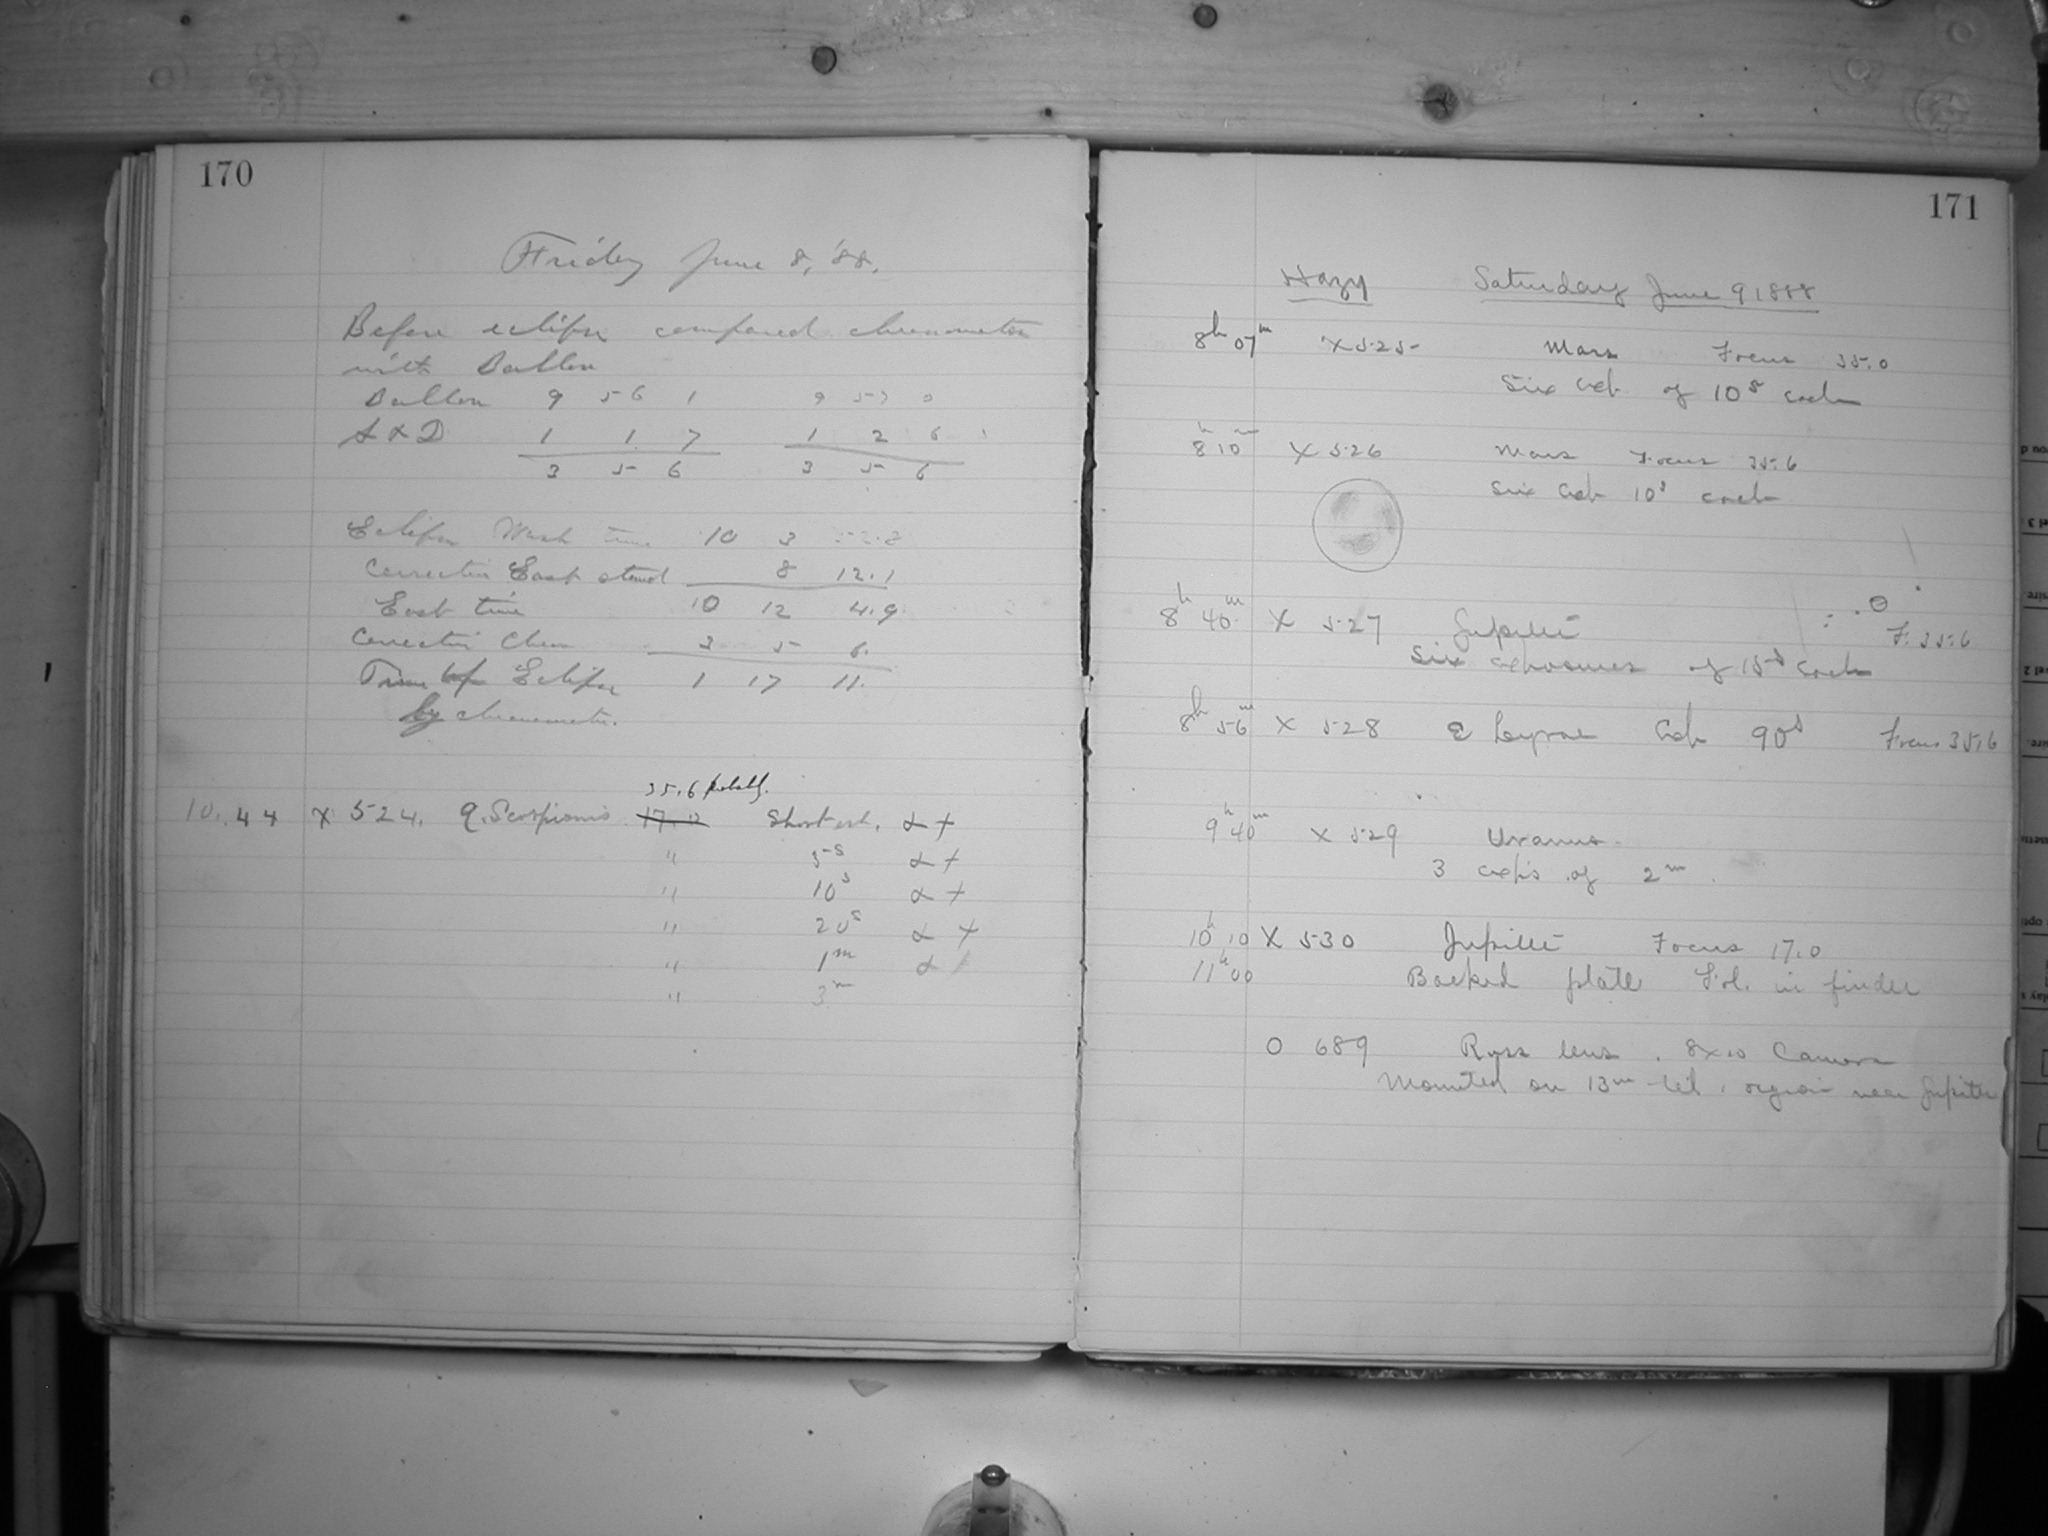 170
Friday June 8, '88.
Before eclipse compared chronometer
with
9 56 1 9 57 0
1 1 7 1 2 6
3 5 6 3 5 6
Eclipse Wash time 10 3
Correction East stand 8 12.1
East time 10 12 4.9
Correction Chron 3 5 6.
Time of Eclipse 1 17 11.
by chronometer.
35.6 probably.
10.44 X 524. Scorpionis 17.0 Short est. α +
" 5s α +
" 10s α +
" 20s α +
" 1m α +
" 3m
171
Hazy Saturday June 9 1888
8h 07m X 525 Mars Focus 35.0
Six exp. of 10s each
8h 10m X 526 Mars Focus 35.6
Six exp 10s each
8h 40m X 527 Jupiter F. 35.6
Six exposures of 15s each
8h 56m X 528 ε Lyrae Exp 90s Focus 35.6
9h 40m X 529 Uranus.
3 exp's of 2m.
10h 10 X 530 Jupiter Focus 17.0
11h 00 Backed plate Fol. in finder
O 689 Ross lens. 8x10 Camera
Mounted on 13in tel. region near Jupiter